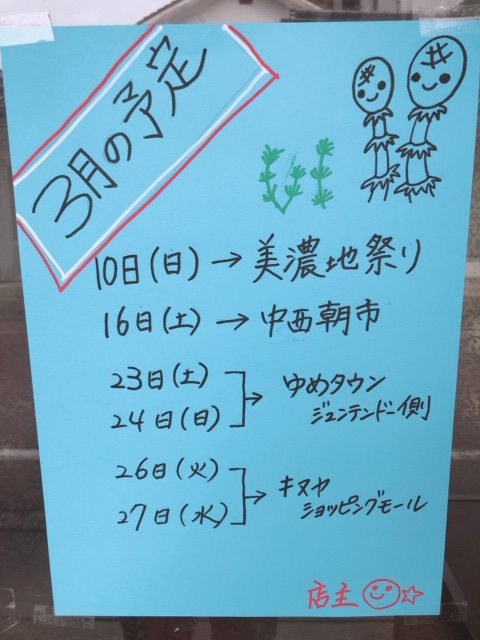 3月の予定
10日(日)→美濃地祭り
16日(土)→中西朝市
23日(土)
24日(日)
→ゆめタウン
ジュンテンドー側
26日(火)
27日(水)
→キヌヤ
ショッピングモール
店主☆